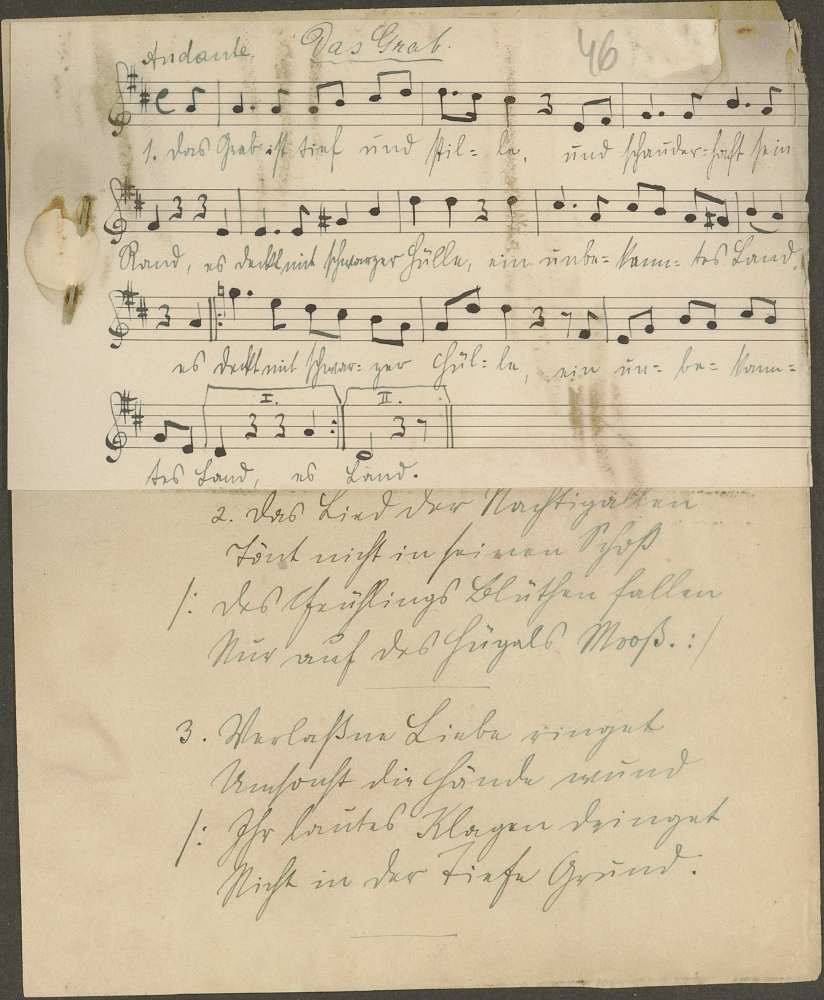 Andante. Das Grab. 46
1. Das Grab ist tief und stil= le, und schauder=haft sein
Rand, es deckt mit schwarzer Hülle, ein unbe= kann= tes Land,
es deckt mit schwar= zer Hül= le, ein un= be= kann=
I. II.
tes Land, es Land.
2. Das Lied der Nachtigallen
Tönt nicht in seinen Schoß
/: Des Frühlings Blüthen fallen
Nur auf des Hügels Mooß. :/
3. Verlaßne Liebe ringet
Umsonst die Hände wund
/: Ihr lautes Klagen dringet
Nicht in der Tiefe Grund.